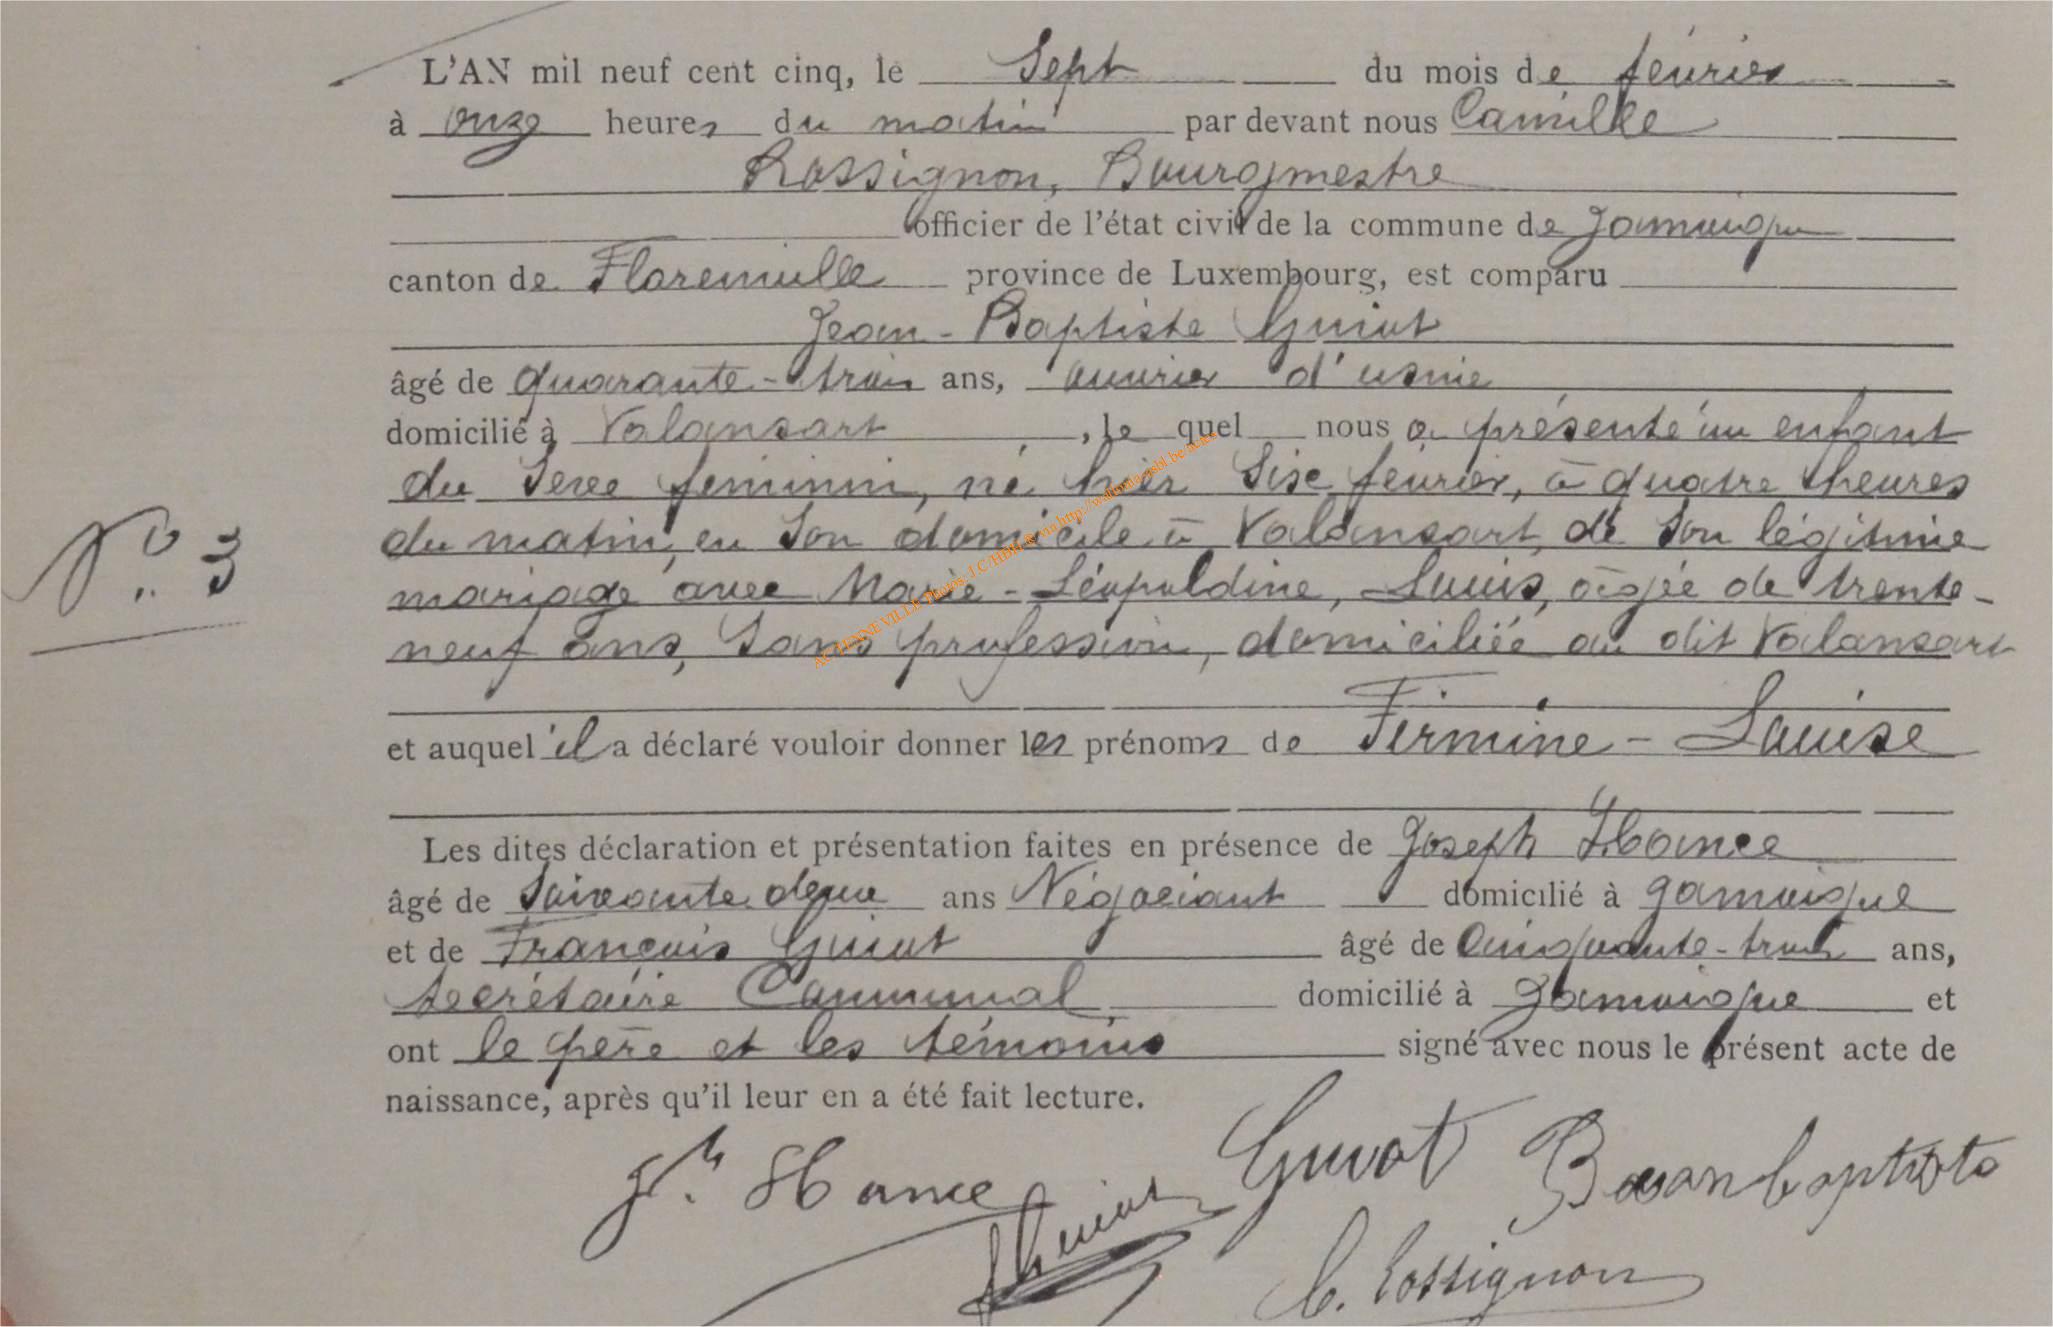 L'AN mil neuf cent cinq, le Sept du mois de février
à onze heures du matin par devant nous Camille
Rossignon, Bourgmestre
officier de l'état civil de la commune de Jamoigne
canton de Florenville province de Luxembourg, est comparu
Jean-Baptiste Guiot
âgé de quarante-trois ans, ouvrier d'usine
domicilié à Valansart, le quel nous a présenté un enfant
du Sexe féminin, né hier Six février, à quatre heures
du matin, en Son domicile à Valansart, de Son légitime
N° 3
mariage avec Marie-Léopoldine, Louis, âgée de trente-
neuf ans, Sans profession, domiciliée au dit Valansart
et auquel il a déclaré vouloir donner les prénoms de Firmine-Louise
Les dites déclaration et présentation faites en présence de Joseph Hance
âgé de Soixante deux ans Négociant domicilié à Jamoigne
et de François Guiot âgé de Cinquante-trois ans,
Secrétaire Communal domicilié à Jamoigne et
ont le père et les témoins signé avec nous le présent acte de
naissance, après qu'il leur en a été fait lecture.
Jh. Hance Guiot
F Guiot
C. Rossignon